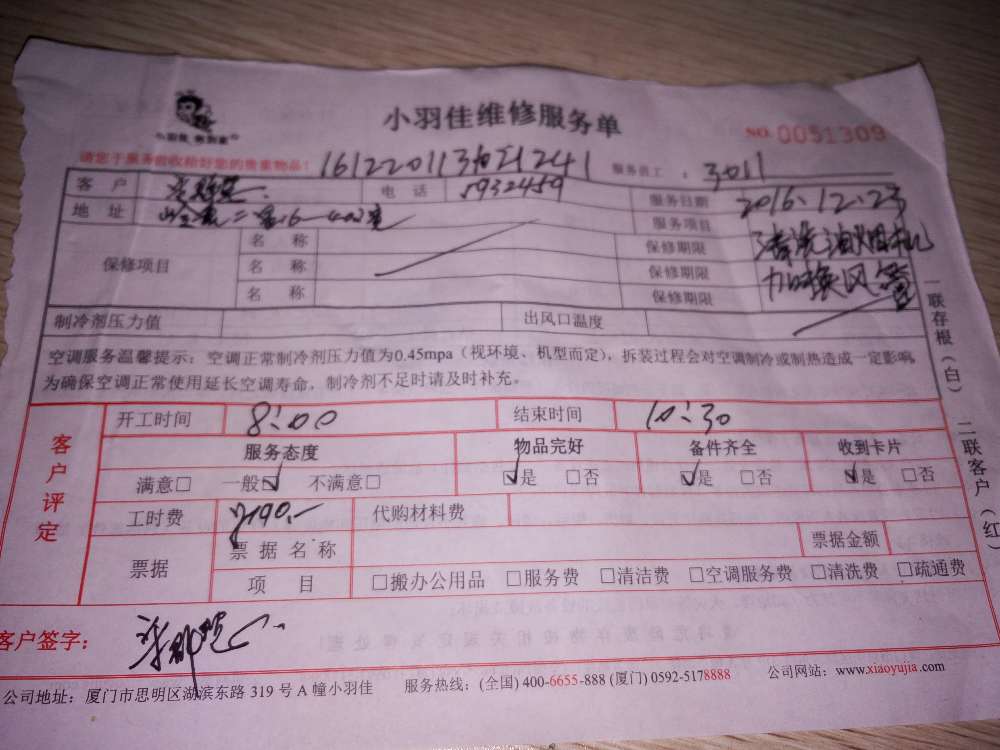 小羽佳维修服务单
NO. 0051309
请您于服务前收拾好您的贵重物品! 服务员工: 3011
客户 电话 5932459 服务日期 2016.12.23
地址 服务项目 清洗油烟机
保修项目 名称 保修期限 加换风管
名称 保修期限
名称 保修期限
制冷剂压力值 出风口温度
空调服务温馨提示: 空调正常制冷剂压力值为0.45mpa (视环境、机型而定), 拆装过程会对空调制冷或制热造成一定影响,
为确保空调正常使用延长空调寿命, 制冷剂不足时请及时补充。
一联存根(白) 二联客户(红)
客户评定
开工时间 8:00 结束时间 10:30
服务态度 物品完好 备件齐全 收到卡片
满意□ 一般☑ 不满意□ ☑是 □否 ☑是 □否 ☑是 □否
工时费 ¥190.- 代购材料费
票据 票据名称 票据金额
项目 □搬办公用品 □服务费 □清洁费 □空调服务费 □清洗费 □疏通费
客户签字:
公司地址: 厦门市思明区湖滨东路 319 号 A 幢小羽佳 服务热线: (全国) 400-6655-888 (厦门) 0592-5178888 公司网站: www.xiaoyujia.com